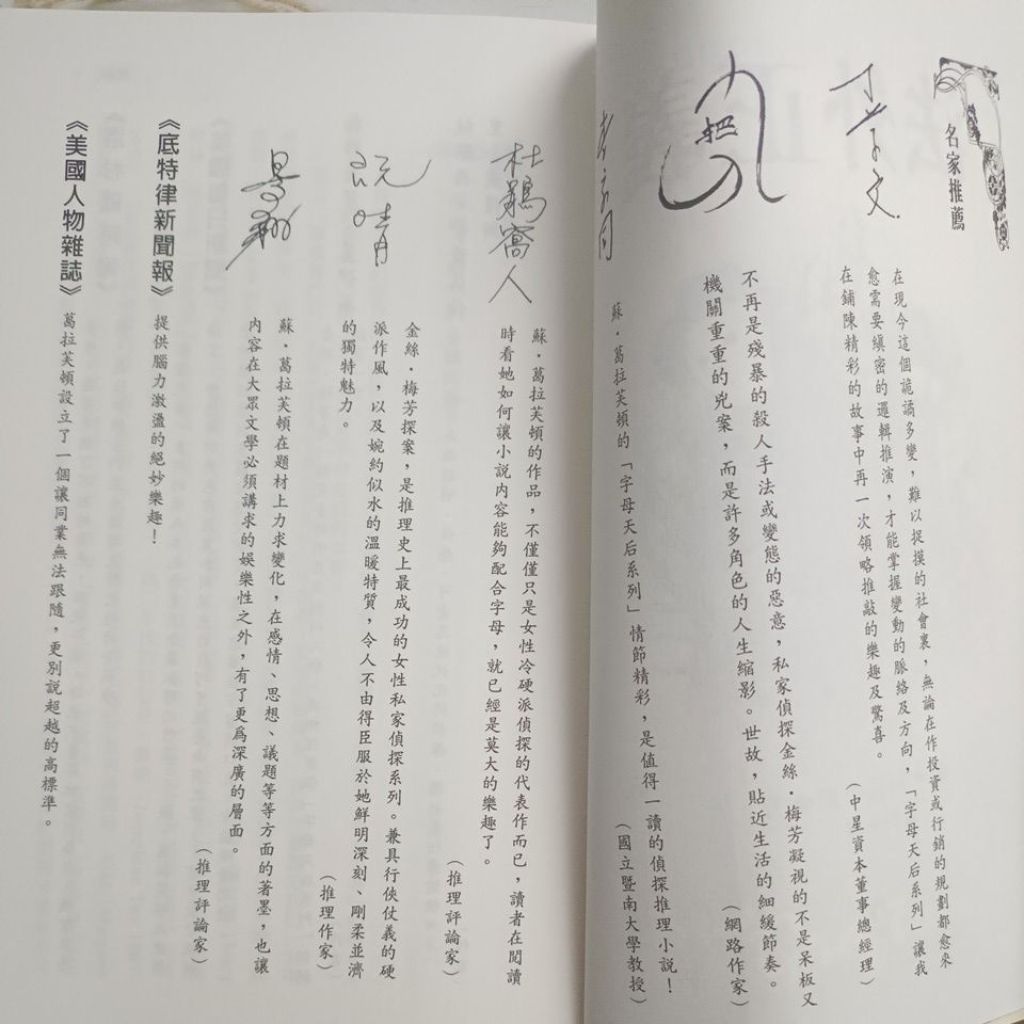 名家推薦
在現今這個詭譎多變，難以捉摸的社會裏，無論在作投資或行銷的規劃都愈來
愈需要縝密的邏輯推演，才能掌握變動的脈絡及方向，「字母天后系列」讓我
在鋪陳精彩的故事中再一次領略推敲的樂趣及驚喜。
（中星資本董事總經理）
不再是殘暴的殺人手法或變態的惡意，私家偵探金絲．梅芳凝視的不是呆板又
機關重重的兇案，而是許多角色的人生縮影。世故，貼近生活的細緩節奏。
（網路作家）
蘇．葛拉芙頓的「字母天后系列」情節精彩，是值得一讀的偵探推理小說！
（國立暨南大學教授）
杜鵑窩人
蘇．葛拉芙頓的作品，不僅僅只是女性冷硬派偵探的代表作而已，讀者在閱讀
時看她如何讓小說內容能夠配合字母，就已經是莫大的樂趣了。
（推理評論家）
既晴
金絲．梅芳探案，是推理史上最成功的女性私家偵探系列。兼具行俠仗義的硬
派作風，以及婉約似水的溫暖特質，令人不由得臣服於她鮮明深刻、剛柔並濟
的獨特魅力。
（推理作家）
景翔
蘇．葛拉芙頓在題材上力求變化，在感情、思想、議題等等方面的著墨，也讓
內容在大眾文學必須講求的娛樂性之外，有了更為深廣的層面。
（推理評論家）
《底特律新聞報》
提供腦力激盪的絕妙樂趣！
《美國人物雜誌》
葛拉芙頓設立了一個讓同業無法跟隨，更別說超越的高標準。